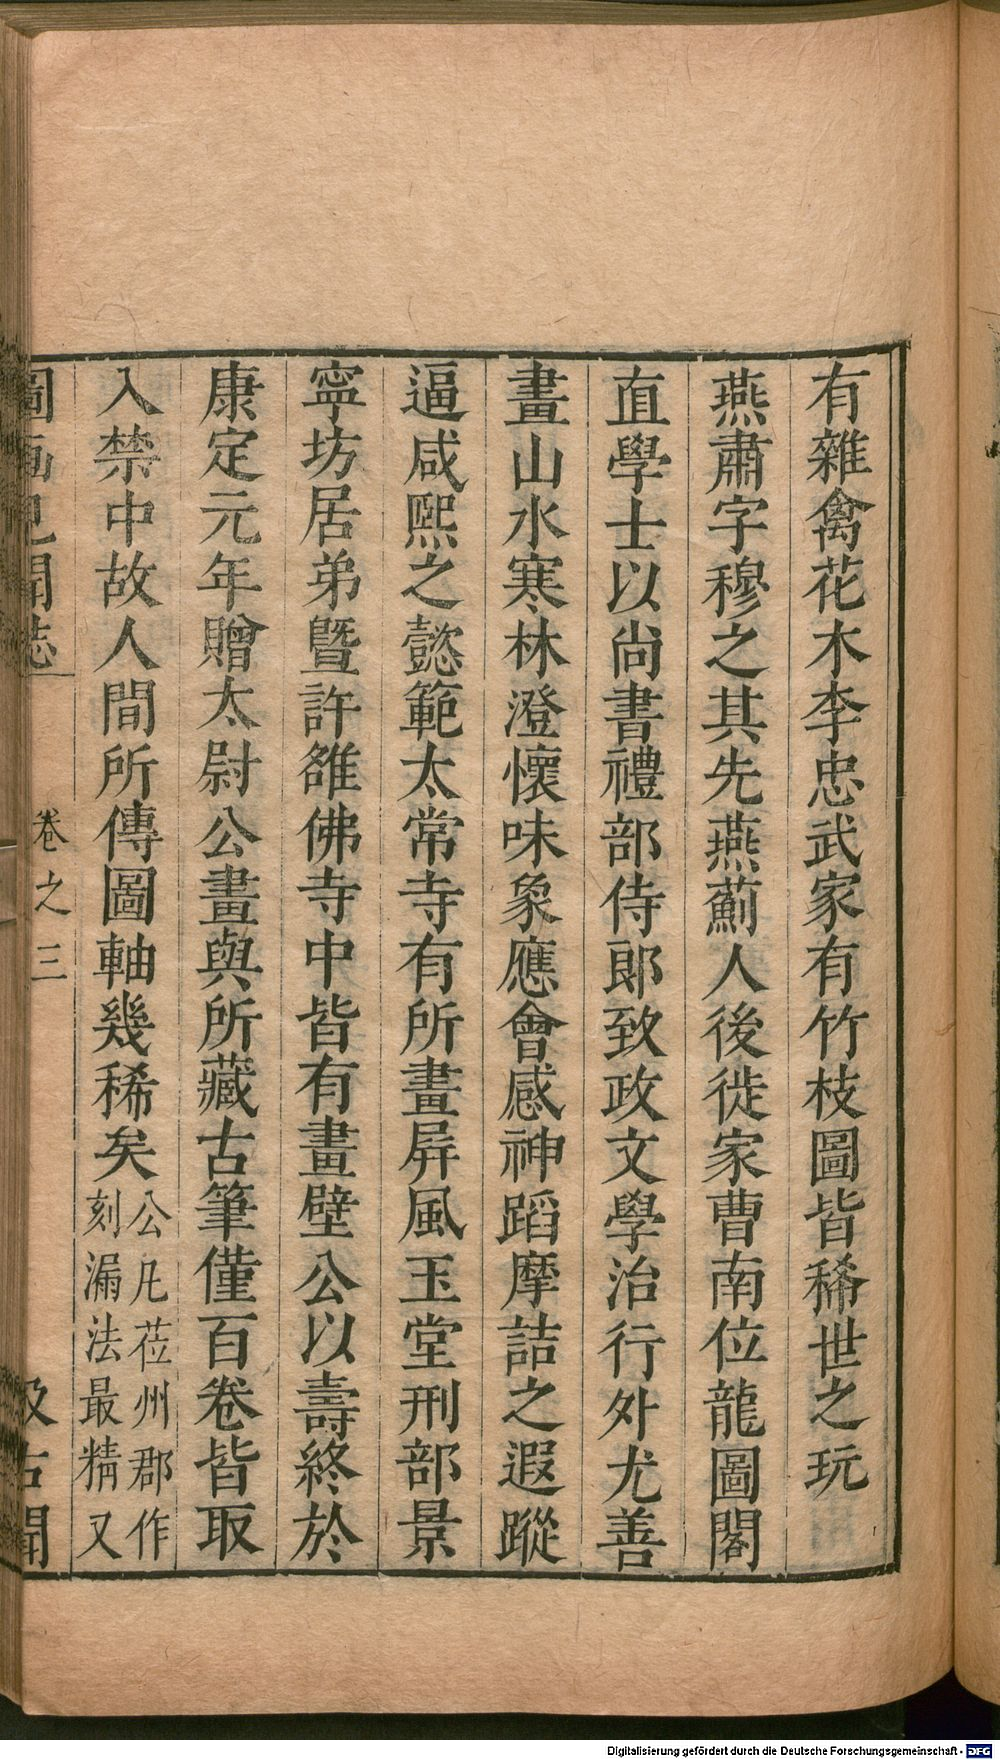 有雜禽花木李忠武家有竹枝圖皆稀世之玩
燕肅字穆之其先燕薊人後徙家曹南位龍圖閣
直學士以尚書禮部侍郎致政文學治行外尤善
畫山水寒林澄懷味象應會感神蹈摩詰之遐蹤
逼咸熙之懿範太常寺有所畫屏風玉堂刑部景
寧坊居弟暨許雒佛寺中皆有畫壁公以壽終於
康定元年贈太尉公畫與所藏古筆僅百卷皆取
入禁中故人間所傳圖軸幾稀矣公凡莅州郡作
刻漏法最精又
圖画見聞誌 卷之三 汲古閣
Digitalisierung gefördert durch die Deutsche Forschungsgemeinschaft - DFG